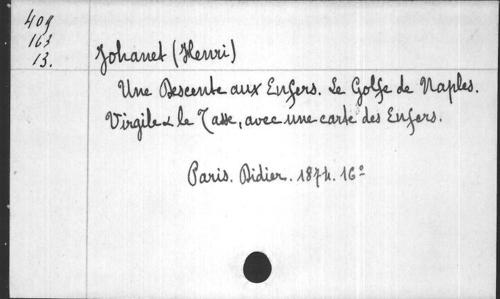 409
163
13.
Johanet (Henri)
Une Descente aux Enfers. Le Golfe de Naples.
Virgile & le Tasse, avec une carte des Enfers.
Paris. Didier. 1874. 16°